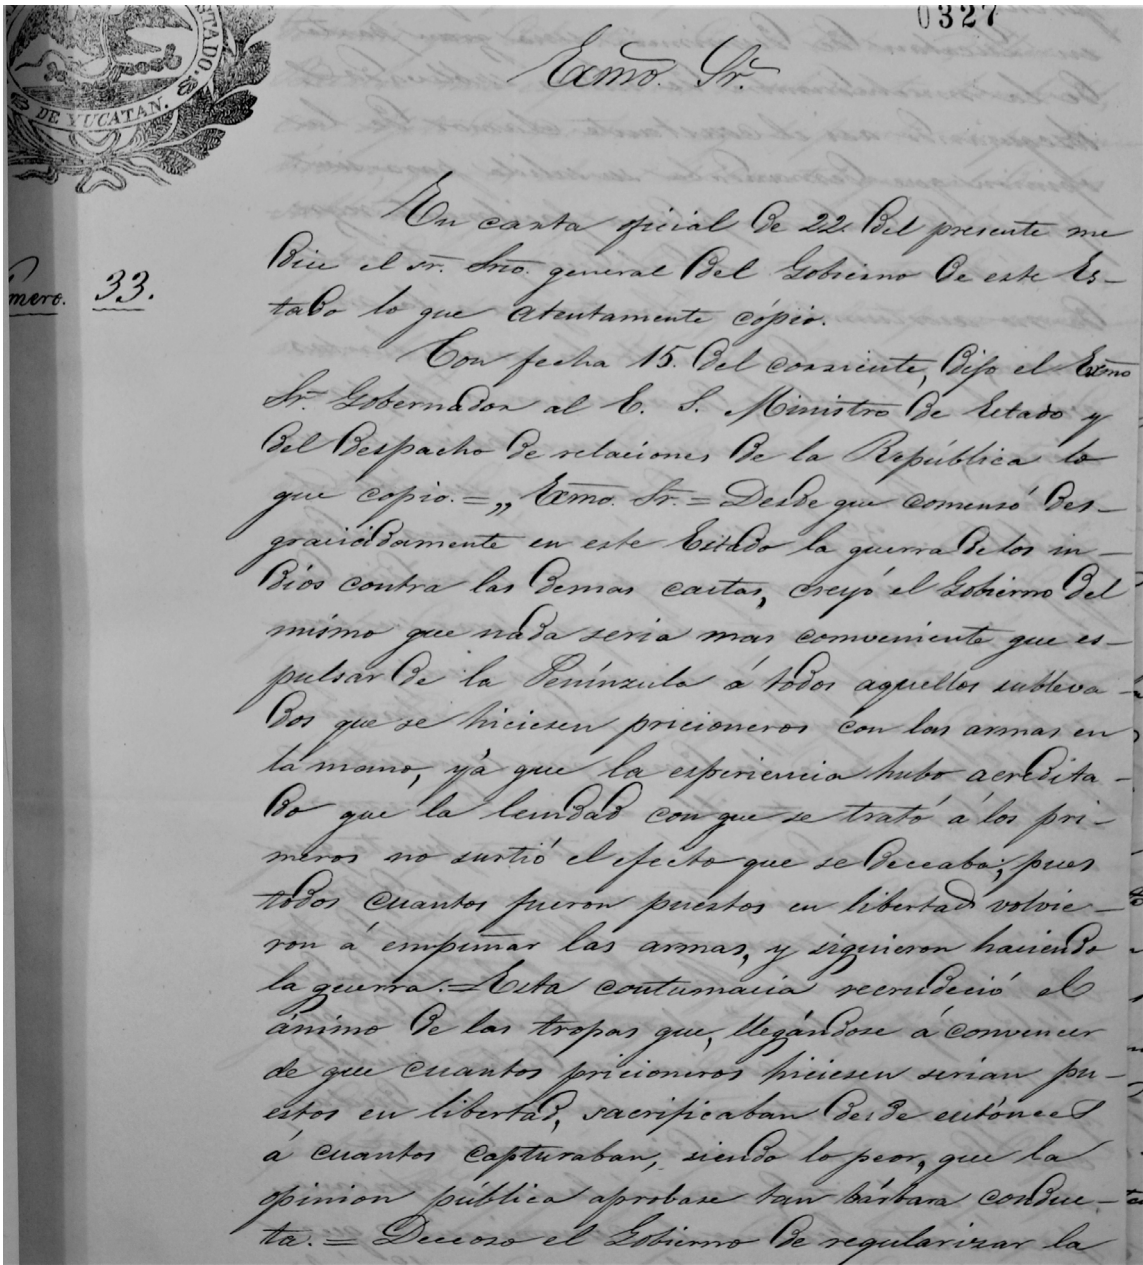 0327
STADO.
DE YUCATAN.
Exmo. Sr.
mero. 33.
En carta oficial de 22. del presente me
dice el sr. Srio. general del Gobierno de este Es-
tado lo que atentamente cópio.
Con fecha 15. del corriente, dijo el Exmo
Sr. Gobernador al E. S. Ministro de Estado y
del Despacho de relaciones de la República lo
que copio. = „ Exmo. Sr. = Desde que comensó des-
graciádamente en este Estado la guerra de los in-
dios contra las demas castas, creyó el Gobierno del
mismo que nada seria mas comveniente que es-
pulsar de la Penínzula á todos aquellos subleva-
dos que se hiciesen pricioneros con las armas en
la mano, yá que la esperiencia hubo acredita-
do que la lenidad con que se trató á los pri-
meros no surtió el efecto que se deceaba; pues
todos cuantos fueron puestos en libertad volvie-
ron á empuñar las armas, y siguieron haciendo
la guerra. = Esta contumacia recrudeció el
ánimo de las tropas que, llegándose á convencer
de que cuantos pricioneros hiciesen serian pu-
estos en libertad, sacrificaban desde entónces
á cuantos capturaban, siendo lo peor, que la
opinion pública aprobase tan bárbara conduc-
ta. = Deceoso el Gobierno de regularizar la